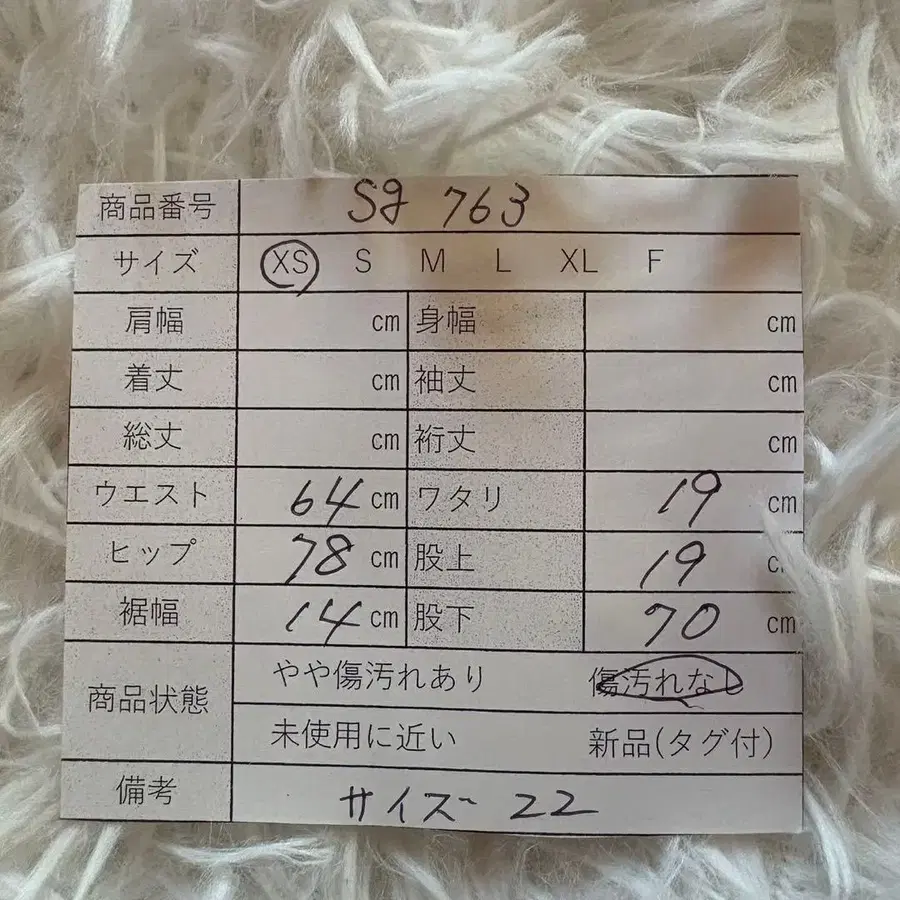 商品番号 Sg 763
サイズ XS S M L XL F
肩幅 cm 身幅 cm
着丈 cm 袖丈 cm
総丈 cm 裄丈 cm
ウエスト 64 cm ワタリ 19 cm
ヒップ 78 cm 股上 19 c
裾幅 14 cm 股下 70 cm
商品状態 やや傷汚れあり 傷汚れなし
未使用に近い 新品(タグ付)
備考 サイズ 22